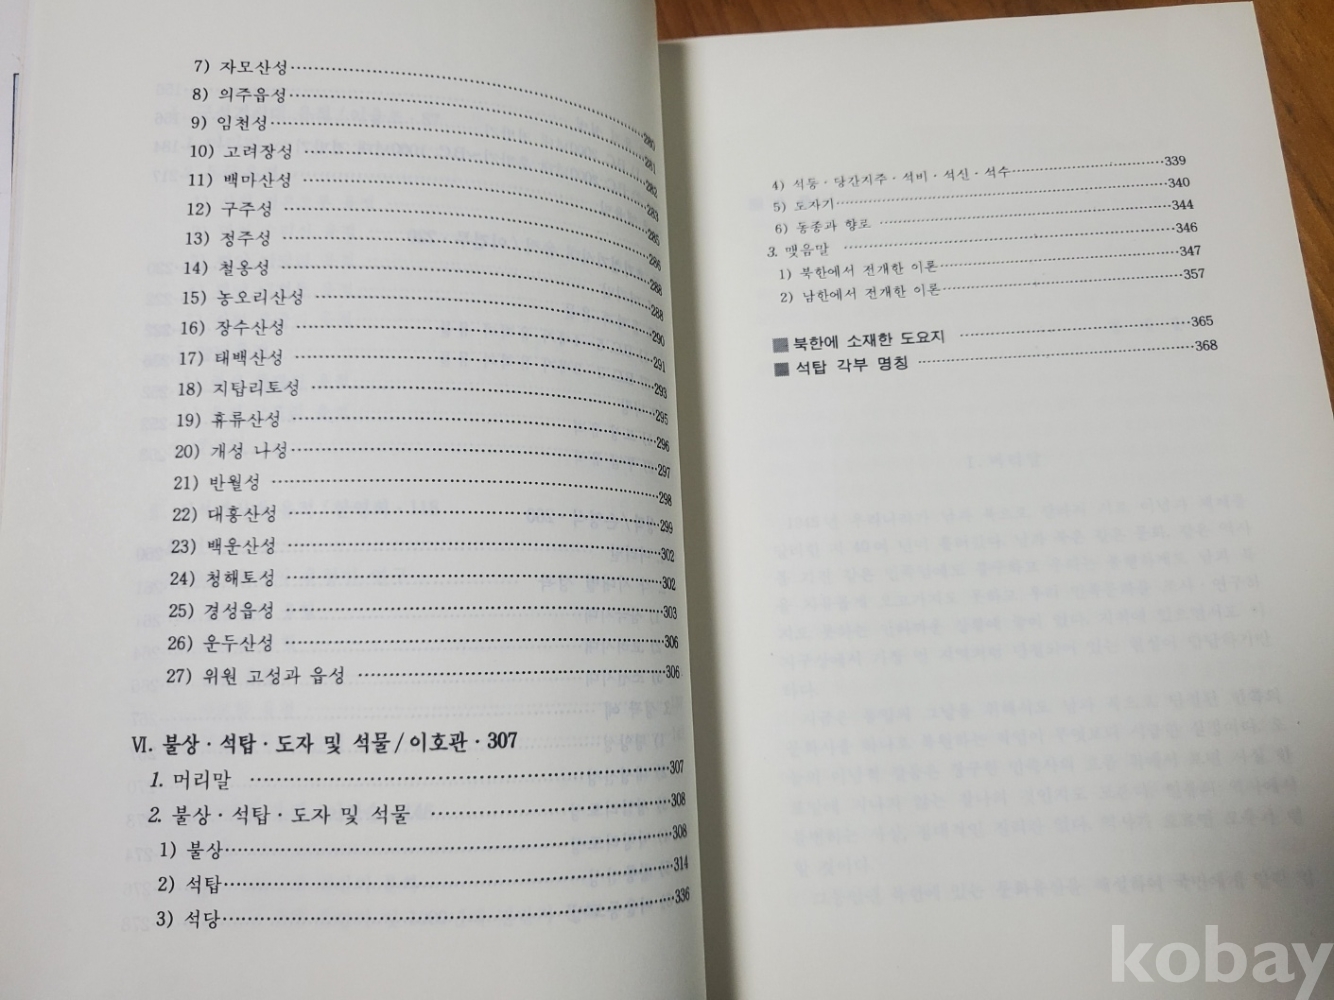 7) 자모산성 ………… 280
8) 의주읍성 ………… 281
9) 임천성 ………… 282
10) 고려장성 ………… 283
11) 백마산성 ………… 285
12) 구주성 ………… 286
13) 정주성 ………… 288
14) 철옹성 ………… 288
15) 농오리산성 ………… 290
16) 장수산성 ………… 291
17) 태백산성 ………… 293
18) 지탑리토성 ………… 295
19) 휴류산성 ………… 296
20) 개성 나성 ………… 297
21) 반월성 ………… 298
22) 대흥산성 ………… 299
23) 백운산성 ………… 302
24) 청해토성 ………… 302
25) 경성읍성 ………… 303
26) 운두산성 ………… 306
27) 위원 고성과 읍성 ………… 306
Ⅵ. 불상·석탑·도자 및 석물/이호관·307
1. 머리말 ………… 307
2. 불상·석탑·도자 및 석물 ………… 308
1) 불상 ………… 308
2) 석탑 ………… 314
3) 석당 ………… 336
4) 석등·당간지주·석비·석신·석수 ………… 339
5) 도자기 ………… 340
6) 동종과 향로 ………… 344
3. 맺음말 ………… 346
1) 북한에서 전개한 이론 ………… 347
2) 남한에서 전개한 이론 ………… 357
■ 북한에 소재한 도요지 ………… 365
■ 석탑 각부 명칭 ………… 368
kobay